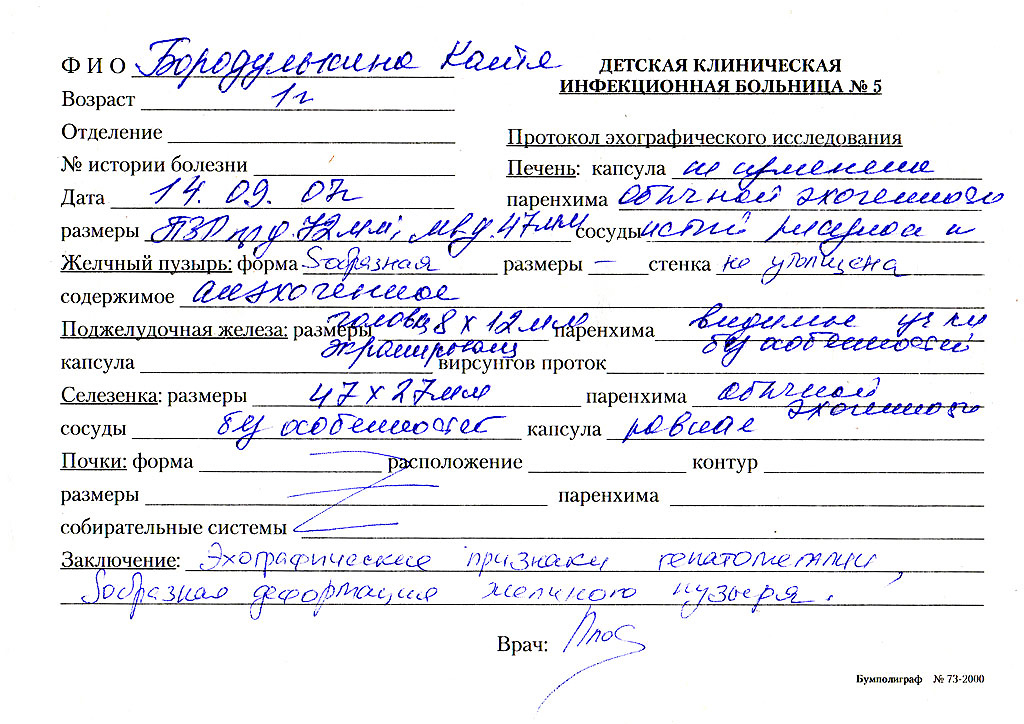 Ф И О Бородулькина Катя
ДЕТСКАЯ КЛИНИЧЕСКАЯ
ИНФЕКЦИОННАЯ БОЛЬНИЦА № 5
Возраст 1 г
Отделение
Протокол эхографического исследования
№ истории болезни
Печень: капсула не изменена
Дата 14. 09. 07г
паренхима обычной эхогенного
размеры ПЗР пр д. 72 мм; лев д. 47 мм сосуды рисунок
Желчный пузырь: форма Sобразная размеры — стенка не утолщена
содержимое анэхогенное
Поджелудочная железа: размеры головка 8 х 12 мм паренхима видимые уч-ки
капсула экранирован вирсунгов проток б/у особенностей
Селезенка: размеры 47 х 27 мм паренхима обычной
эхогенного
сосуды б/у особенностей капсула ровная
Почки: форма расположение контур
размеры паренхима
собирательные системы
Заключение: Эхографические признаки гепатомегалии,
Sобразная деформация желчного пузыря.
Врач:
Бумполиграф № 73-2000